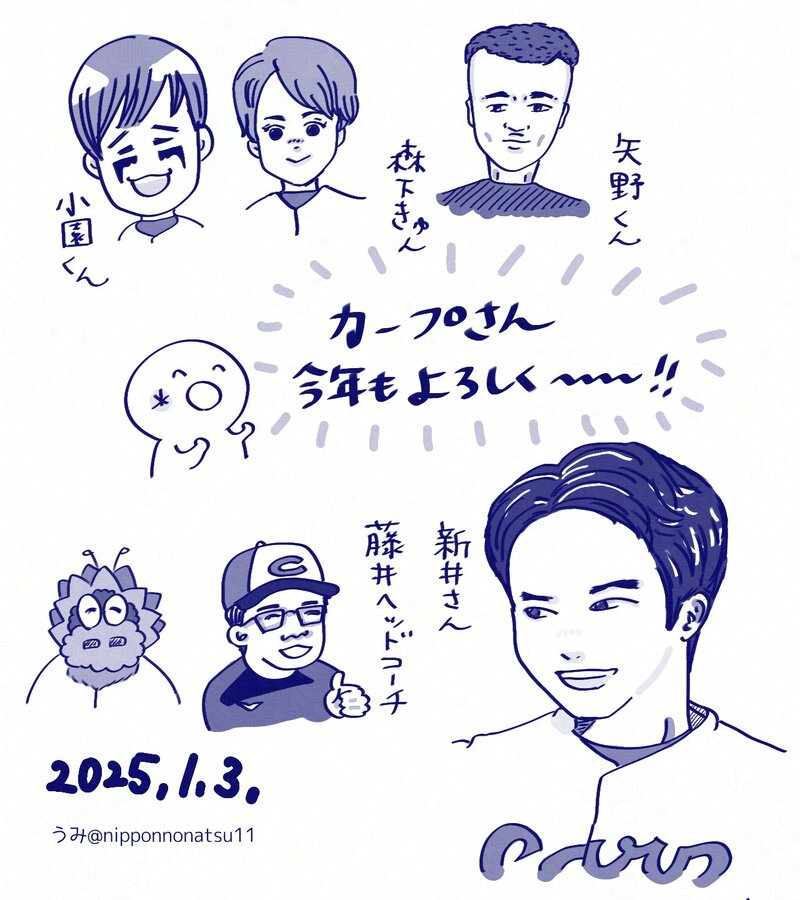 小園くん
森下きゅん
矢野くん
カープさん
今年もよろしく〜〜!!
C
藤井ヘッドコーチ
新井さん
2025.1.3.
うみ@nipponnonatsu11